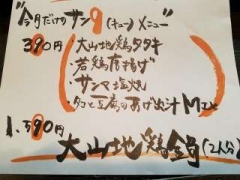 "今月だけのサン9(キュー)メニュー"
390円 大山地鶏タタキ
・若鶏唐揚げ
・サンマ塩焼
・タコと豆腐のあげ出汁
1,390円
大山地鶏鍋(2人分)